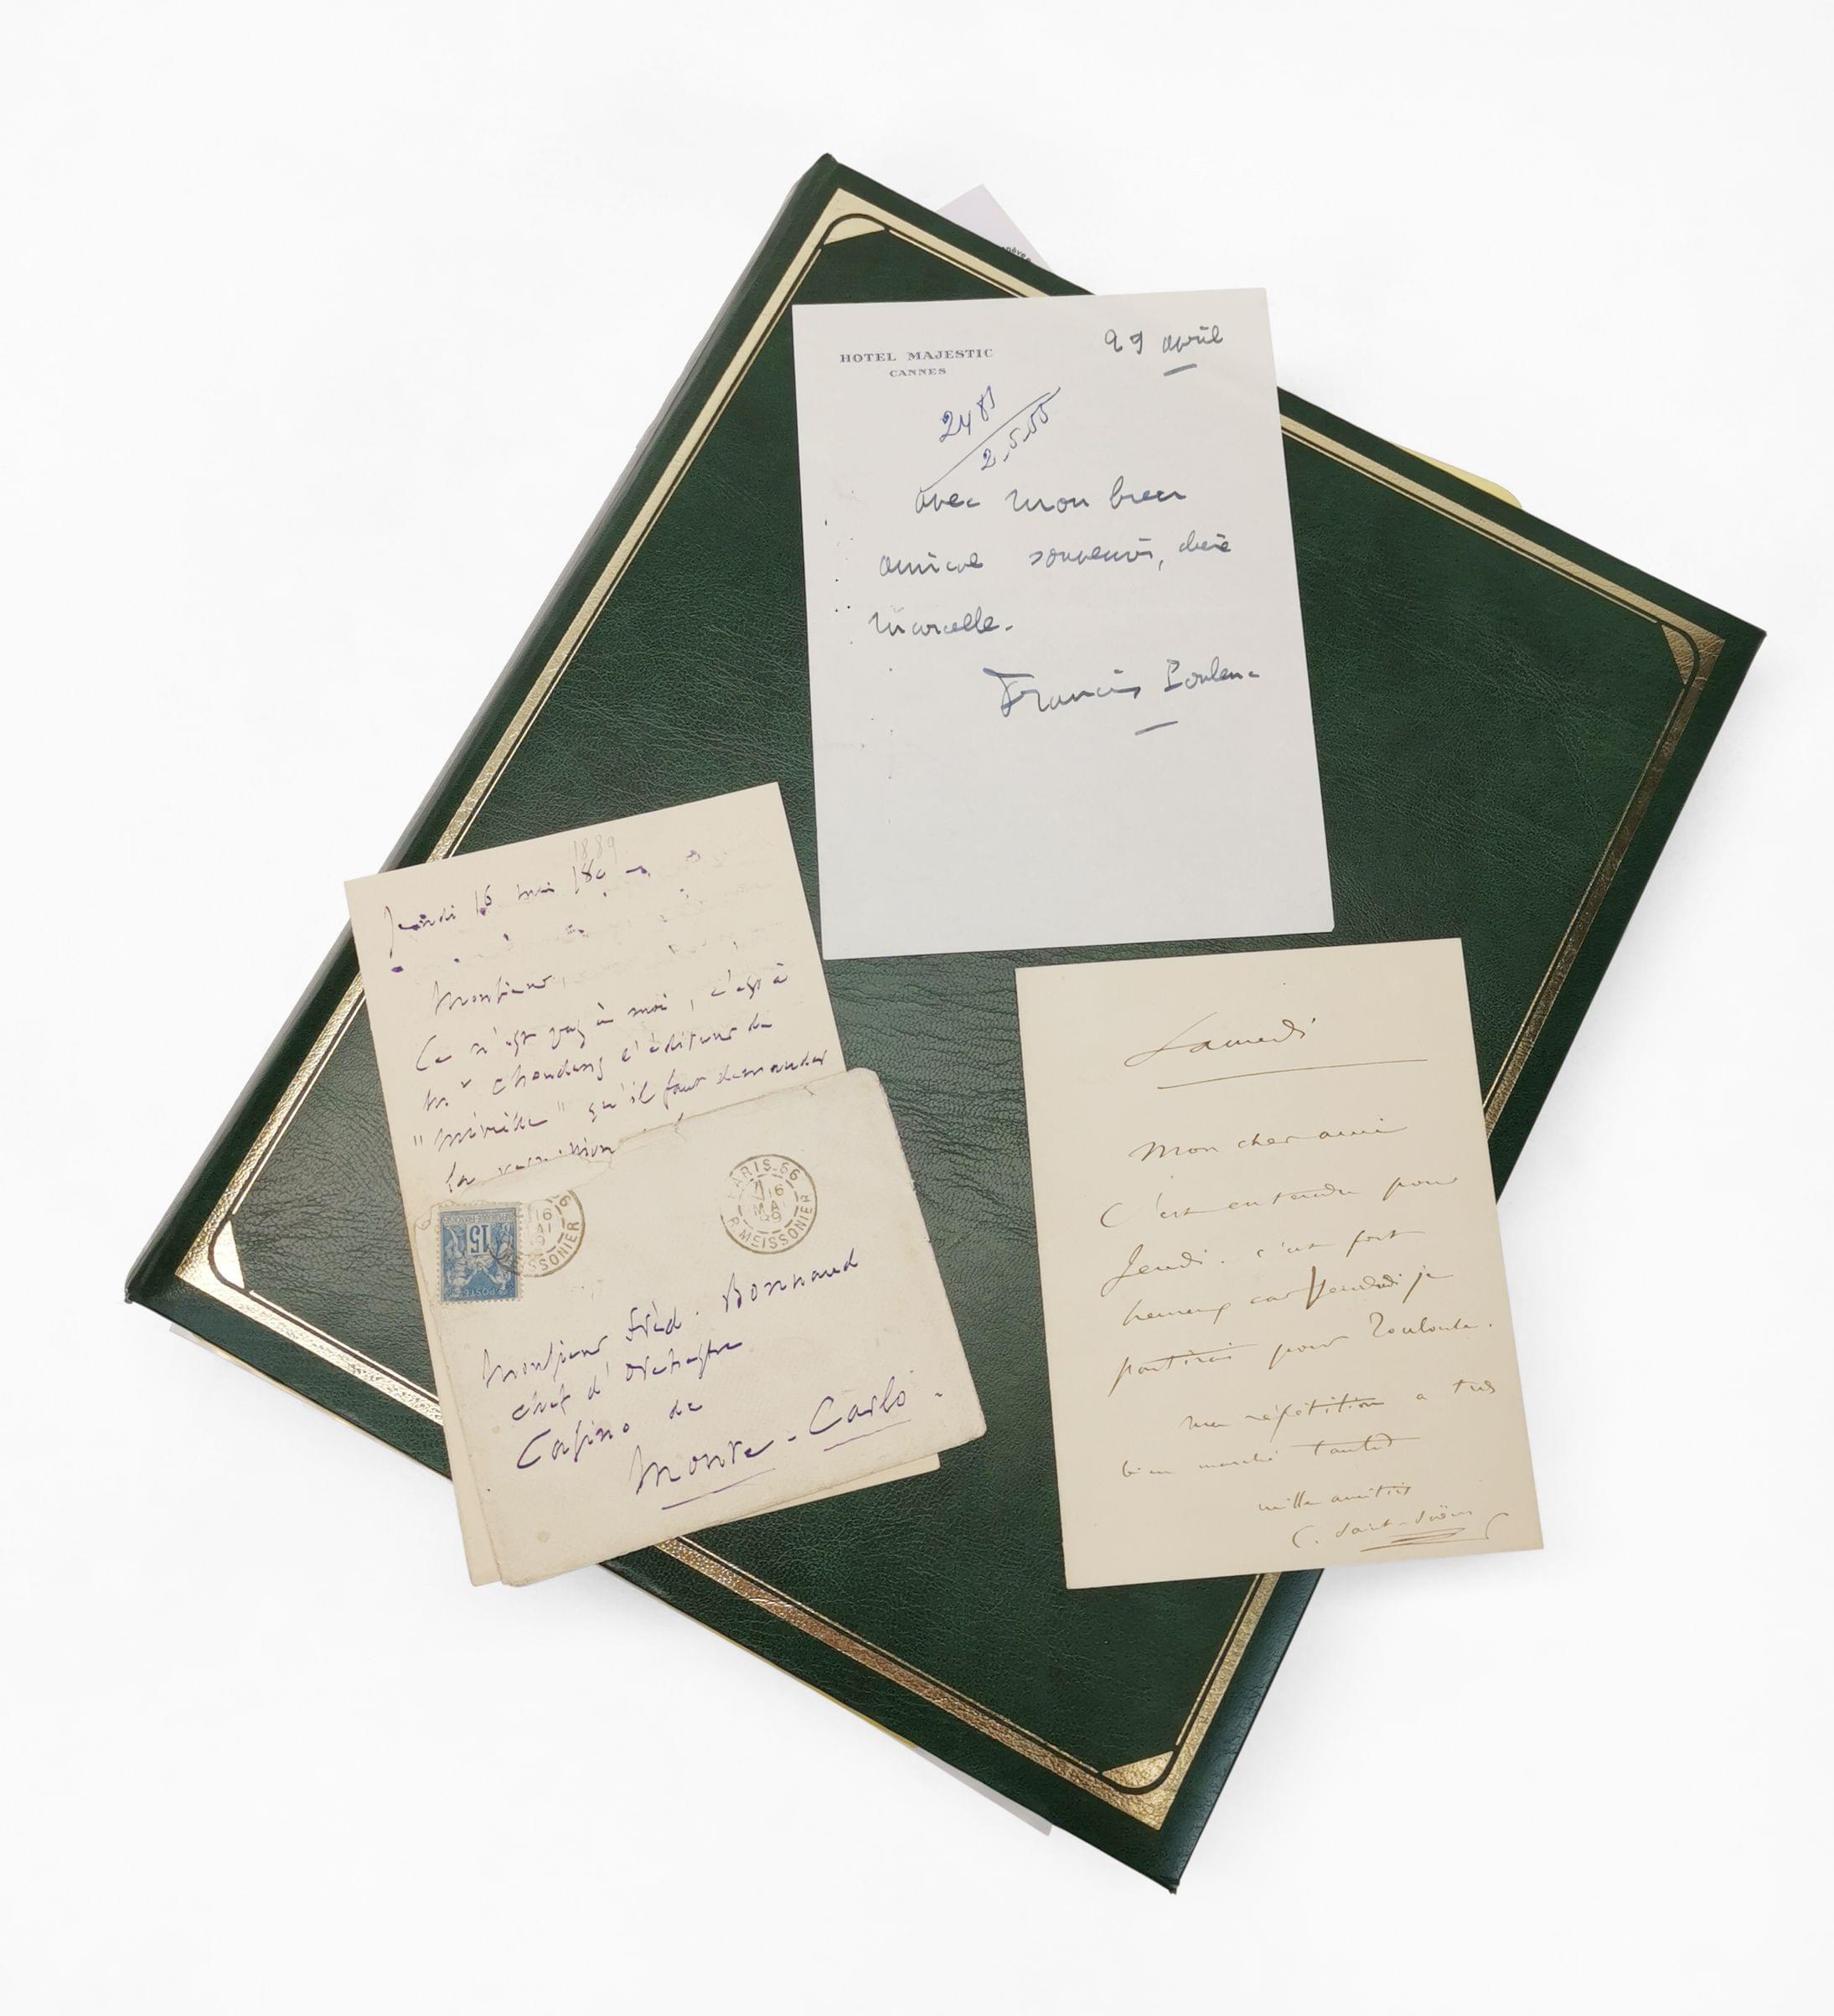 HOTEL MAJESTIC
CANNES
29 avril
avec mon bien
amical souvenir, chère
Marcelle.
Francis Poulenc
1889
Jeudi 16 mai
Monsieur,
Ce n'est pas à moi, c'est à
Mr Choudens l'éditeur de
"Mireille" qu'il faut demander
la
PARIS-66
16
MAI
89
R. MEISSONIER
16
SSONIER
15
POSTES
Monsieur Fréd. Bonnaud
chef d'orchestre
Casino de
Monte-Carlo.
Samedi
Mon cher ami
C'est entendu pour
Jeudi. c'est fort
heureux car Vendredi je
partirai pour Toulouse.
Ma répétition a très
bien marché tantôt
mille amitiés
C. Saint-Saëns